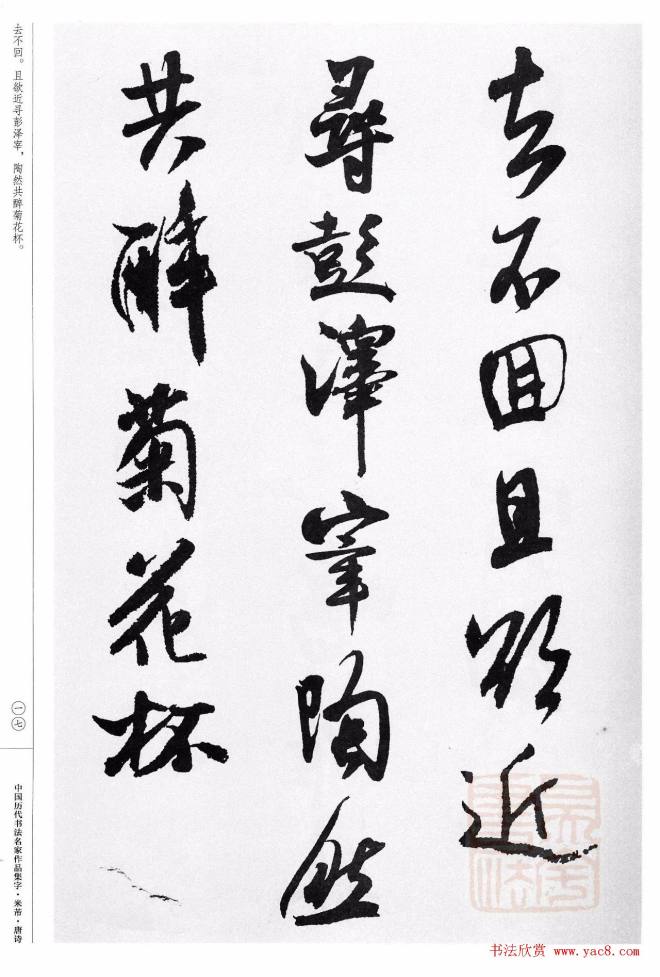 去不回且欲近
尋彭澤宰陶然
共醉菊花杯
去不回。且欲近寻彭泽宰，陶然共醉菊花杯。
一七
中国历代书法名家作品集字·米芾·唐诗
书法欣赏 www.yac8.com